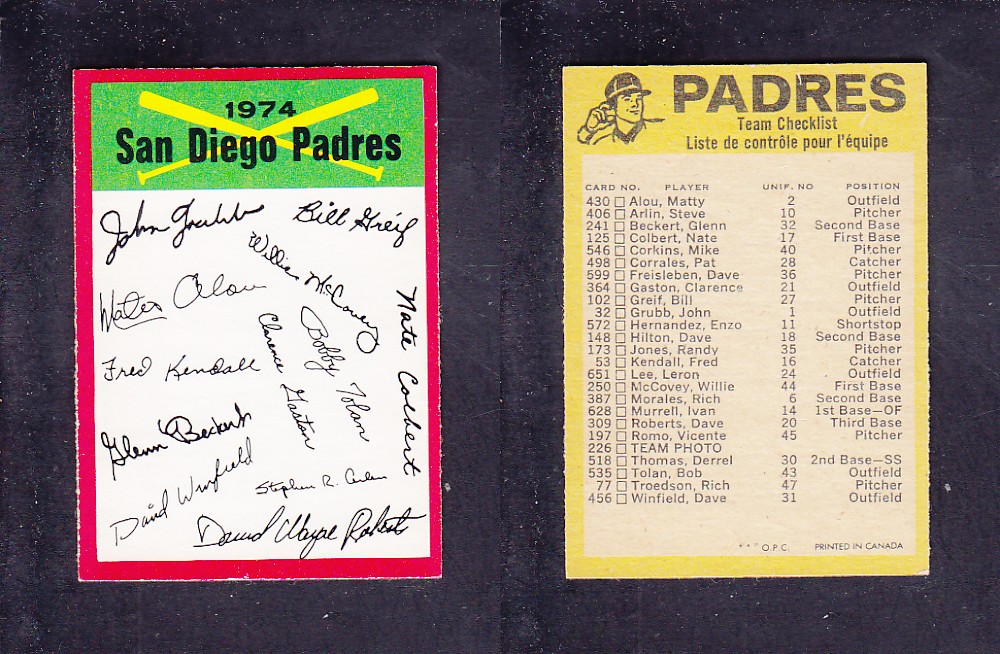 1974
San Diego Padres
John Grubb
Bill Greif
William McCovey
Mateo Alou
Nate Colbert
Clarence Gaston
Bobby Tolan
Fred Kendall
Glenn Beckert
David Winfield
Stephen R. Arlin
David Wayne Roberts
PADRES
Team Checklist
Liste de contrôle pour l'équipe
CARD NO. PLAYER UNIF. NO POSITION
430 Alou, Matty 2 Outfield
406 Arlin, Steve 10 Pitcher
241 Beckert, Glenn 32 Second Base
125 Colbert, Nate 17 First Base
546 Corkins, Mike 40 Pitcher
498 Corrales, Pat 28 Catcher
599 Freisleben, Dave 36 Pitcher
364 Gaston, Clarence 21 Outfield
102 Greif, Bill 27 Pitcher
32 Grubb, John 1 Outfield
572 Hernandez, Enzo 11 Shortstop
148 Hilton, Dave 18 Second Base
173 Jones, Randy 35 Pitcher
53 Kendall, Fred 16 Catcher
651 Lee, Leron 24 Outfield
250 McCovey, Willie 44 First Base
387 Morales, Rich 6 Second Base
628 Murrell, Ivan 14 1st Base—OF
309 Roberts, Dave 20 Third Base
197 Romo, Vicente 45 Pitcher
226 TEAM PHOTO
518 Thomas, Derrel 30 2nd Base—SS
535 Tolan, Bob 43 Outfield
77 Troedson, Rich 47 Pitcher
456 Winfield, Dave 31 Outfield
** O.P.C. PRINTED IN CANADA